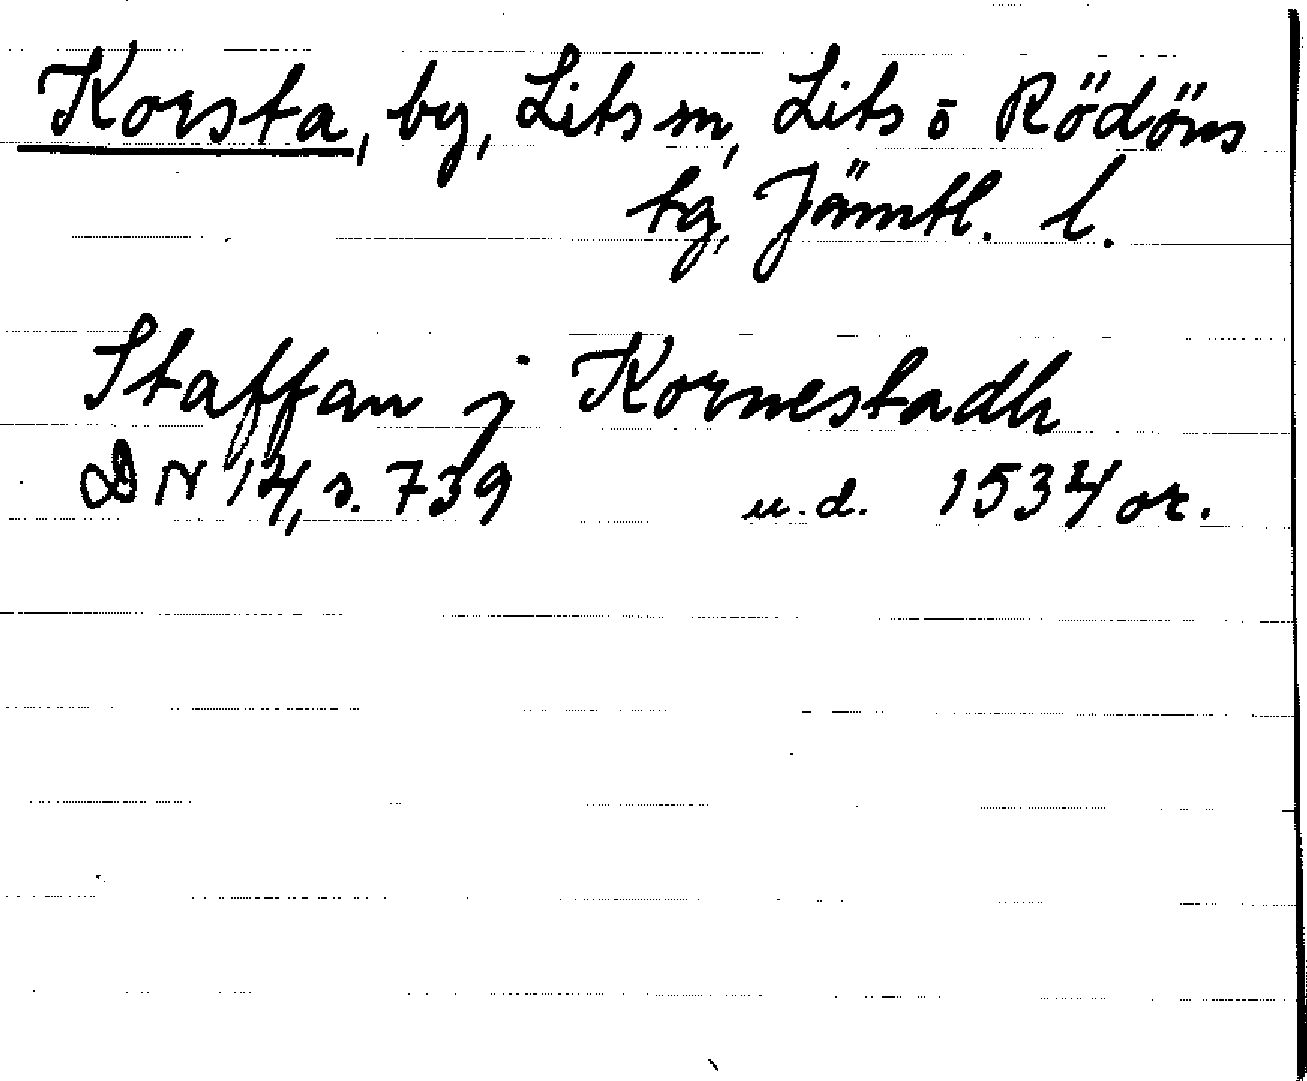 Korsta, by, Lits sn, Lits o Rödöns
tg, Jämtl. l.
Staffan j Kornestadh
DN 14, s. 739 u.d. 1534 or.